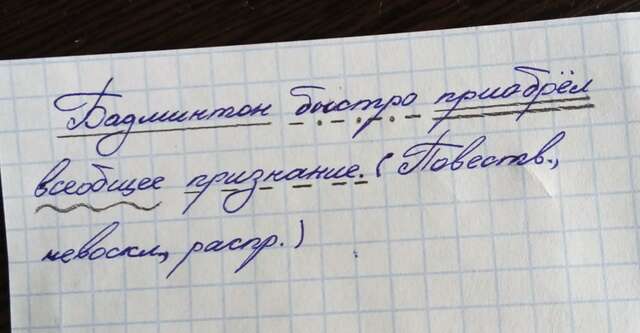 Бадминтон быстро приабрёл
всеобщее признание. (Повеств.,
невоскл, распр.)